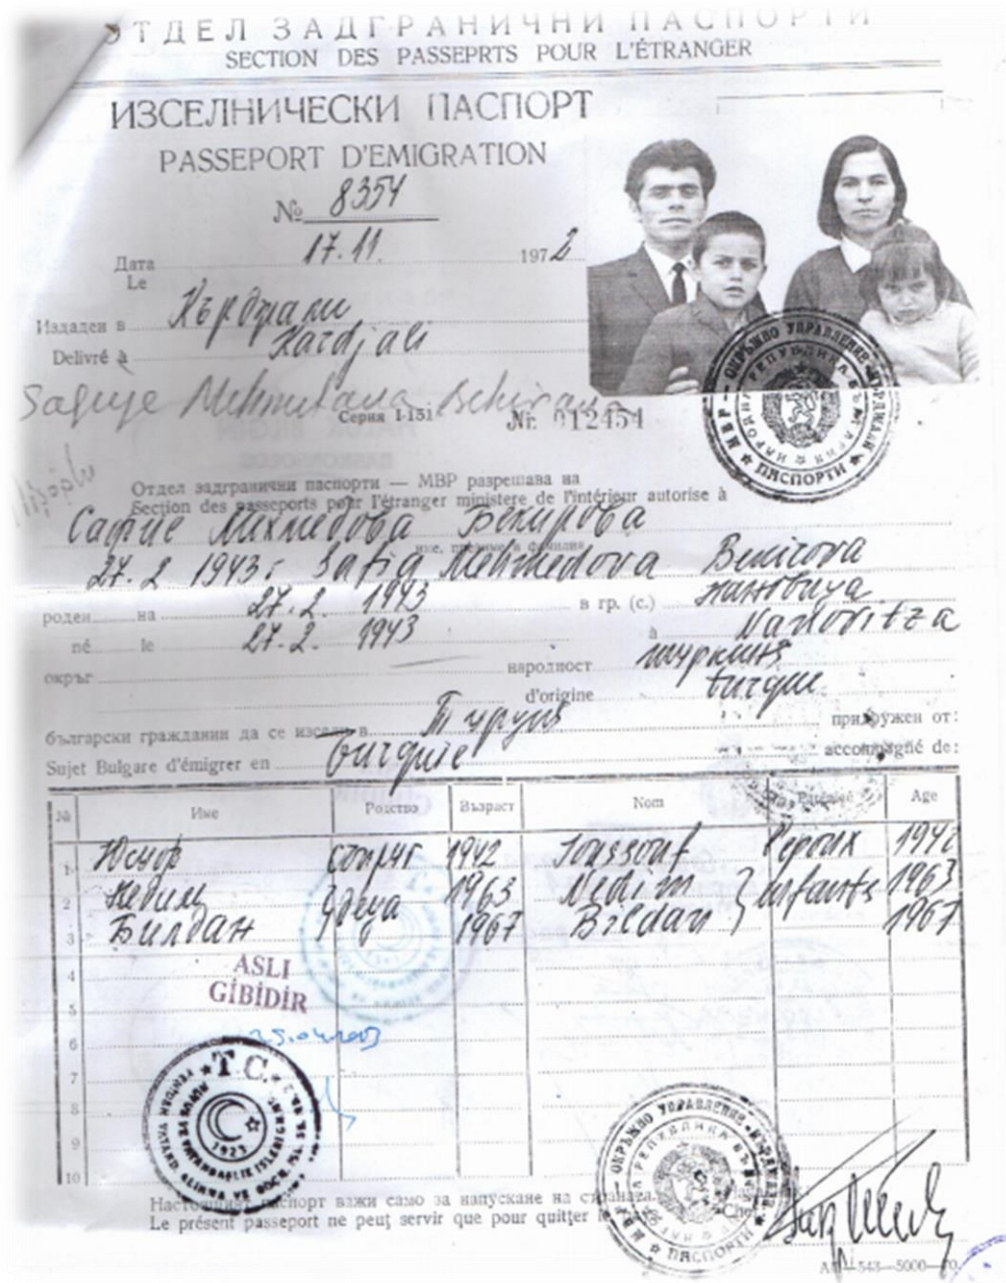 ОТДЕЛ ЗАДГРАНИЧНИ ПАСПОРТИ
SECTION DES PASSEPRTS POUR L'ÉTRANGER
ИЗСЕЛНИЧЕСКИ ПАСПОРТ
PASSEPORT D'EMIGRATION
№ 8354
Дата 17.11. 1972
Le
Издаден в Кърджали
Delivré à Kardjali
Серия I-151 Nr. 012454
Отдел задгранични паспорти — МВР разрешава на
Section des passeports pour l'étranger ministere de l'intérieur autorise à
Сафие Мехмедова Бекирова
име, презиме и фамилия
27. 2 1943 г. Safia Mehmedova Benirova
роден на 27. 2. 1943 в гр. (с.)
né le 27. 2. 1943 à
окръг народност туркиня
d'origine turque
български гражданин да се изсели в Турция придружен от:
Sujet Bulgare d'émigrer en Turquie accompagné de:
№ Име Родство Възраст Nom Parenté Age
1 Юсуф съпруг 1942 Joussouf l'epoux 1942
2 Недим деца 1963 Nedim } enfants 1963
3 Билдан 1967 Bildan 1967
4
5
6
7
8
9
10
ASLI
GİBİDİR
T.C.
1923
МВР ★ ОКРЪЖНО УПРАВЛЕНИЕ • КЪРДЖАЛИ ★ ПАСПОРТИ
НАРОДНА РЕПУБЛИКА БЪЛГАРИЯ
МВР ★ ОКРЪЖНО УПРАВЛЕНИЕ • КЪРДЖАЛИ ★ ПАСПОРТИ
Настоящият паспорт важи само за напускане на страната.
Le présent passeport ne peut servir que pour quitter
543—5000—70